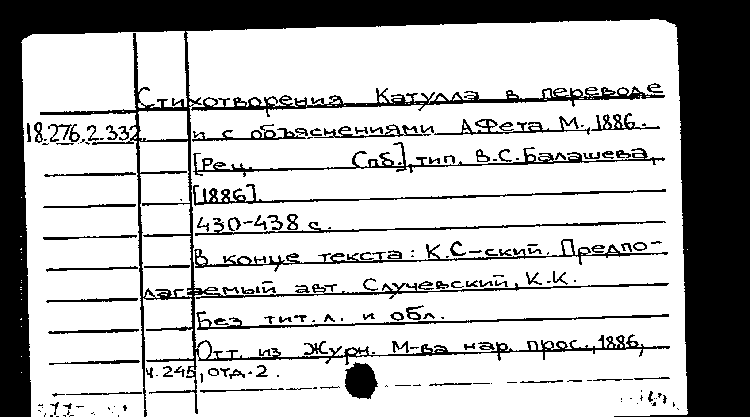 Стихотворения Катулла в переводе
18.276.2.332 и с объяснениями А.Фета. М., 1886.
[Рец. Спб.], тип. В.С.Балашева,
[1886].
430-438 с.
В конце текста: К.С-ский. Предпо-
лагаемый авт. Случевский, К.К.
Без тит.л. и обл.
Отт. из Журн. М-ва нар. прос., 1886,
ч.245, отд.2.